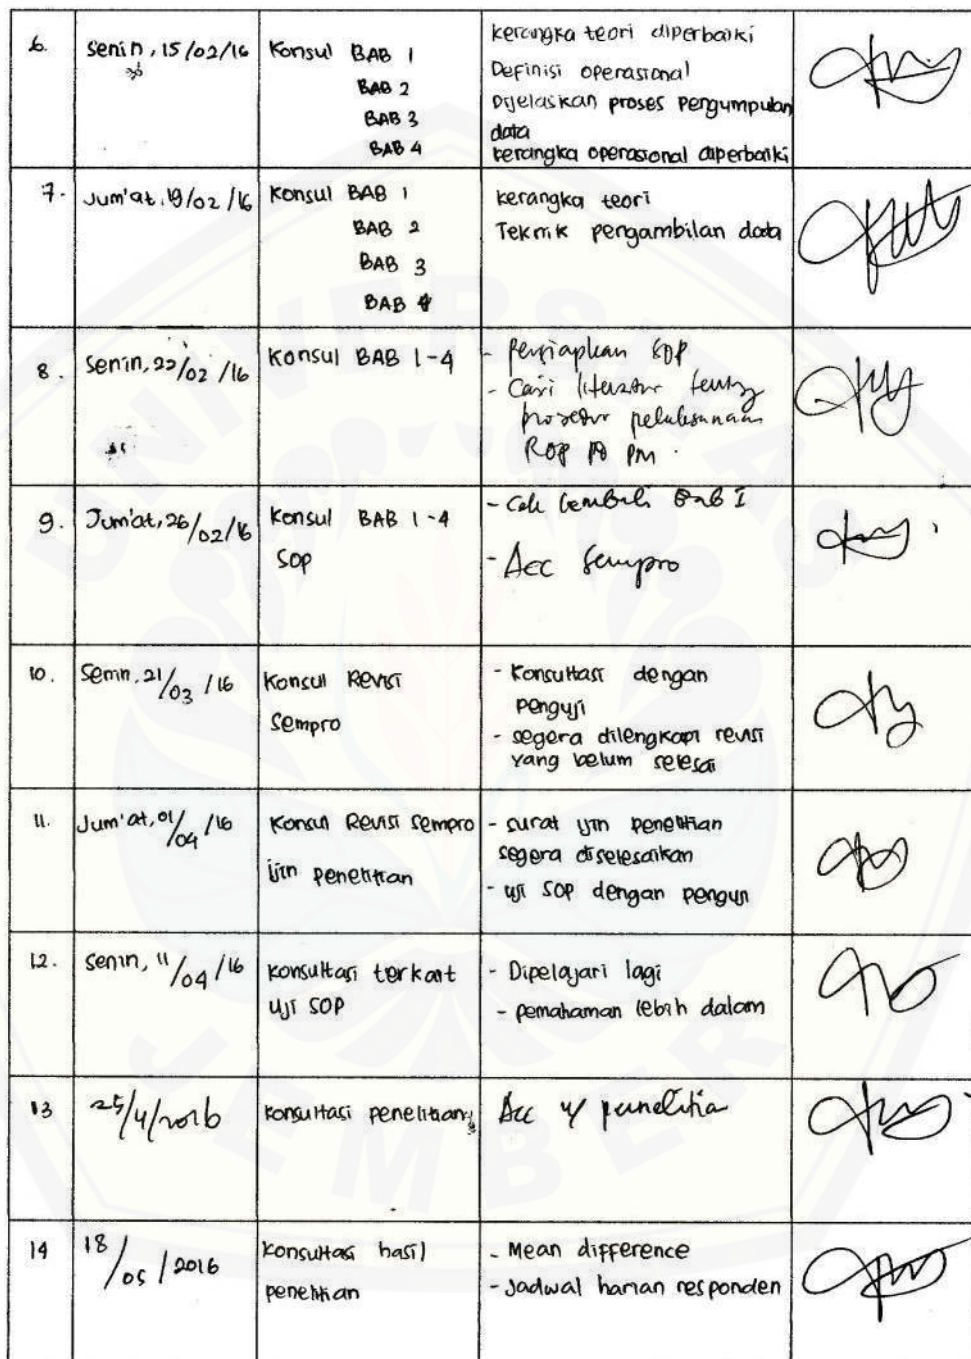 6. Senin, 15/02/16 Konsul BAB 1
BAB 2
BAB 3
BAB 4
kerangka teori diperbaiki
Definisi operasional
Dijelaskan proses pengumpulan
data
kerangka operasional diperbaiki
7. Jum'at, 19/02/16 Konsul BAB 1
BAB 2
BAB 3
BAB 4
kerangka teori
Teknik pengambilan data
8. Senin, 22/02/16 Konsul BAB 1-4
- Persiapkan SOP
- Cari literatur tentang
prosedur pelaksanaan
ROP PM.
9. Jum'at, 26/02/16 Konsul BAB 1-4
SOP
- Cek kembali Bab I
- Acc Sempro
10. Senin, 21/03/16 Konsul Revisi
Sempro
- Konsultasi dengan
penguji
- segera dilengkapi revisi
yang belum selesai
11. Jum'at, 01/04/16 Konsul Revisi Sempro
ijin penelitian
- surat ijin penelitian
segera diselesaikan
- uji SOP dengan penguji
12. Senin, 11/04/16 konsultasi terkait
uji SOP
- Dipelajari lagi
- pemahaman lebih dalam
13 25/4/2016 konsultasi penelitian
Acc u/ penelitia
14 18/05/2016 konsultasi hasil
penelitian
- Mean difference
- Jadwal harian responden
UNIVERSITAS
JEMBER